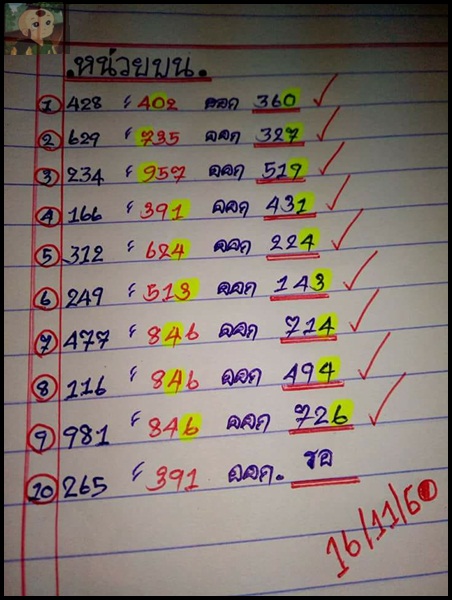 .หน่วยบน.
1 428 ร 402 ออก 360 ✓
2 629 ร 735 ออก 327 ✓
3 234 ร 957 ออก 519 ✓
4 166 ร 391 ออก 431 ✓
5 312 ร 624 ออก 224 ✓
6 249 ร 513 ออก 143 ✓
7 477 ร 846 ออก 714 ✓
8 116 ร 846 ออก 494 ✓
9 981 ร 846 ออก 726 ✓
10 265 ร 391 ออก. รอ
16/11/60